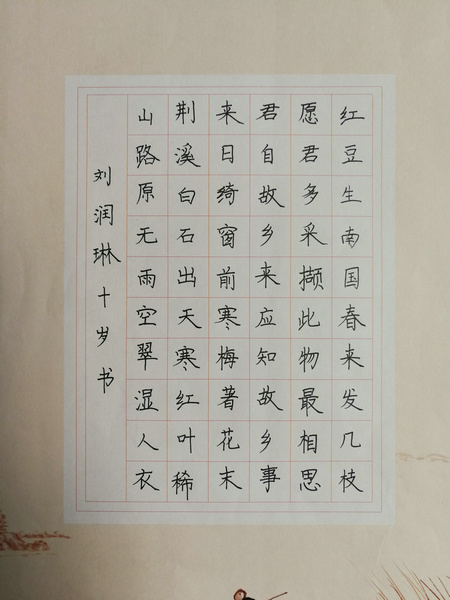 红豆生南国春来发几枝
愿君多采撷此物最相思
君自故乡来应知故乡事
来日绮窗前寒梅著花末
荆溪白石出天寒红叶稀
山路原无雨空翠湿人衣
刘润琳十岁书